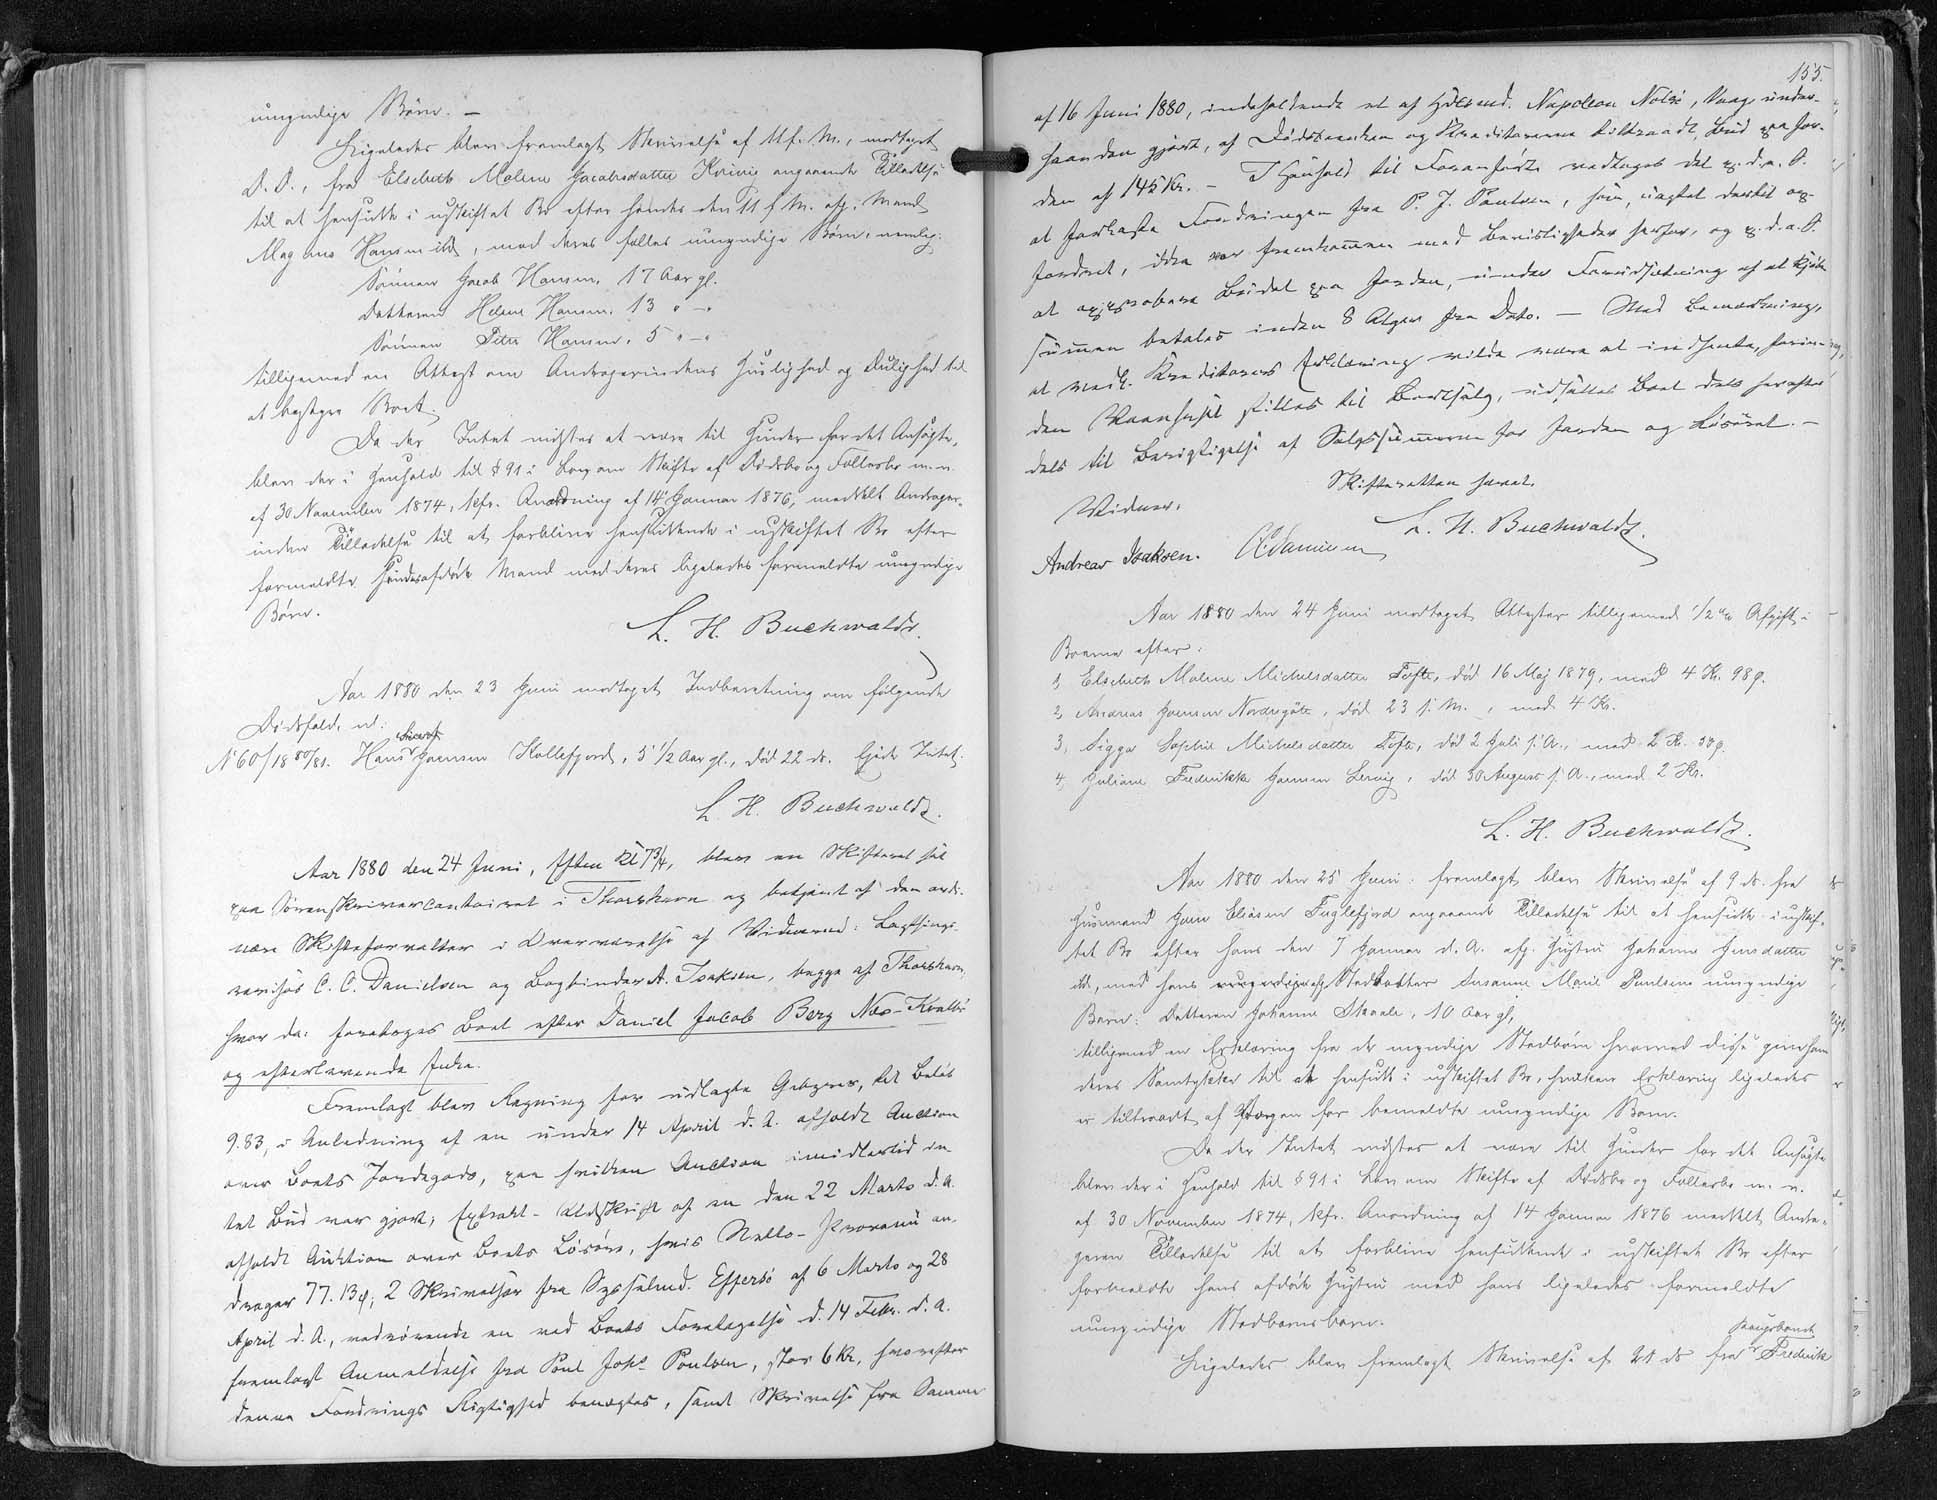 umyndige Børn. —
Ligeledes blev fremlagt Skrivelse af 11 f. M., modtaget
D. D., fra Elsebeth Malene Jacobsdatter Kvivig angaaende Tilladelse
til at hensidde i uskiftet Bo efter hendes den 11 f. M. afg. Mand
Magnus Hansen ibd, med deres fælles umyndige Børn, nemlig:
Sønnen Jacob Hansen, 17 Aar gl.
Datteren Helene Hansen, 13 " — "
Sønnen Peter Hansen, 5 " — "
tilligemed en Attest om Andragerindens Huslighed og Duelighed til
at bestyre Boet.
Da der Intet vidstes at være til Hinder for det Ansøgte,
blev der i Henhold til § 91 i Lov om Skifte af Dødsbo og Fællesbo m. v.
af 30 November 1874, kfr. Anordning af 14 Januar 1876, meddelt Andrager-
inden Tilladelse til at forblive hensiddende i uskiftet Bo efter
formeldte hendes afdøde Mand med deres ligeledes formeldte umyndige
Børn.
L. H. Buchwaldt.
Aar 1880 den 23 Juni modtaget Indberetning om følgende
Dødsfald, nl:
Sivert
N 60/1880/81. Hans Joensen Kollefjord, 5 1/2 Aar gl., død 22 ds. Ejede Intet.
L. H. Buchwaldt.
Aar 1880 den 24 Juni, Aften Kl 7 3/4, blev en Skifteret sat
paa Sorenskrivercontoiret i Thorshavn og betjent af den ordi-
nære Skifteforvalter i Overværelse af Vidnerne: Lagthings-
revisor C. C. Danielsen og Bogbinder A. Isaksen, begge af Thorshavn,
hvor da: foretoges Boet efter Daniel Jacob Berg Næs-Kvalbø
og efterlevende Enke.
Fremlagt blev Regning for udlagte Gebyrer, til Beløb
9.83, i Anledning af en under 14 April d. A. afholdt Auction
over Boets Jordegods, paa hvilken Auction imidlertid in-
tet Bud var gjort; Extrakt-Udskrift af en den 22 Marts d. A.
afholdt Auktion over Boets Løsøre, hvis Netto-Provenu an-
drager 77. 13 ø; 2 Skrivelser fra Sysselmd. Effersø af 6 Marts og 28
April d. A., vedrørende en ved Boets Foretagelse d. 14 Febr. d. A.
fremlagt Anmeldelse fra Poul Johs Poulsen, stor 6 Kr, hvorefter
denne Fordrings Rigtighed benægtes, samt Skrivelse fra Samme
155.
af 16 Juni 1880, indeholdende et af Napoleon Nolsø, Vaag under-
haanden gjort, af Dødsboenken og Kreditorerne tiltraadt, Bud paa Jor-
den af 145 Kr. — I Henhold til Foranførte vedtoges det p. d. a. S.
at forkaste Fordringen fra P. J. Poulsen, som, uagtet dertil op-
fordret, ikke var fremkommen med Bevisligheder herfor, og p. d. a. S.
at approbere Budet paa Jorden, under Forudsætning af at Kjøbe-
summen betales inden 8 Uger fra Dato. — Med Bemærkning,
at vedk. Kreditorers Erklæring vilde være at indhente, forinden
den Vaanhuset stilles til Bortsalg, udsattes Boet dels herefter
dels til Berigtigelse af Salgssummerne for Jorden og Løsøret. —
Skifteretten hævet.
L. H. Buchwaldt.
Vidner.
Andreas Isaksen. CDanielsen
Aar 1880 den 24 Juni modtaget Attester tilligemed 1/2 % Afgift i
Boerne efter:
1, Elsebeth Malene Michelsdatter Tofte, død 16 Maj 1879, med 4 Kr. 98 ø.
2, Andreas Joensen Nordregøte, død 23 f. M., med 4 Kr.
3, Sigga Sophie Michelsdatter Tofte, død 2 Juli f. A., med 2 Kr. 50 ø.
4, Juliane Frederikke Joensen Lervig, død 30 August f. A., med 2 Kr.
L. H. Buchwaldt.
Aar 1880 den 25 Juni. fremlagt blev Skrivelse af 9 ds. fra
Huusmand Joen Eliasen Fuglefjord angaaende Tilladelse til at hensidde i uskif-
tet Bo efter hans den 7 Januar d. A. afg. Hustru Johanne Jensdatter
ibd, med hans afg. Steddatter Susanne Marie Poulsens umyndige
Barn: Datteren Johanne Skaale, 10 Aar gl,
tilligemed en Erklæring fra de myndige Stedbørn hvorved disse give
deres Samtykke til at hensidde i uskiftet Bo, hvilken Erklæring ligeledes
er tiltraadt af Værgen for bemeldte umyndige Barn.
Da der Intet vidstes at være til Hinder for det Ansøgte
blev der i Henhold til § 91 i Lov om Skifte af Dødsbo og Fællesbo m. v.
af 30 November 1874, kfr. Anordning af 14 Januar 1876 meddelt Andra-
geren Tilladelse til at forblive hensiddende i uskiftet Bo efter
formeldte hans afdøde Hustru med hans ligeledes formeldte
umyndige Stedbarnsbarn.
Kongsbonde
Ligeledes blev fremlagt Skrivelse af 21 ds fra Frederik